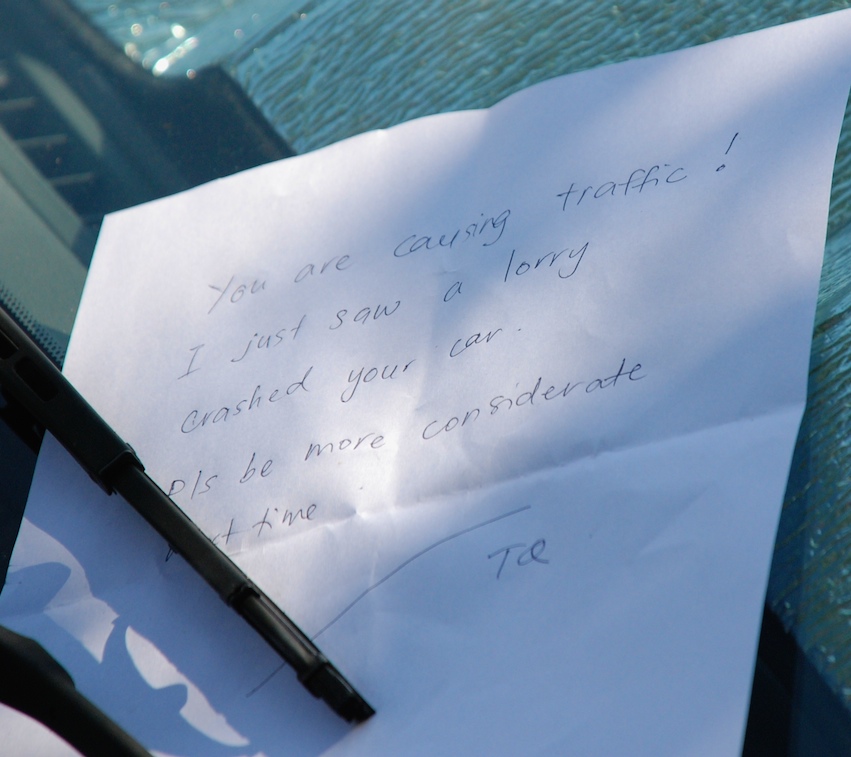 You are causing traffic !
I just saw a lorry
crashed your car.
Pls be more considerate
time
TQ